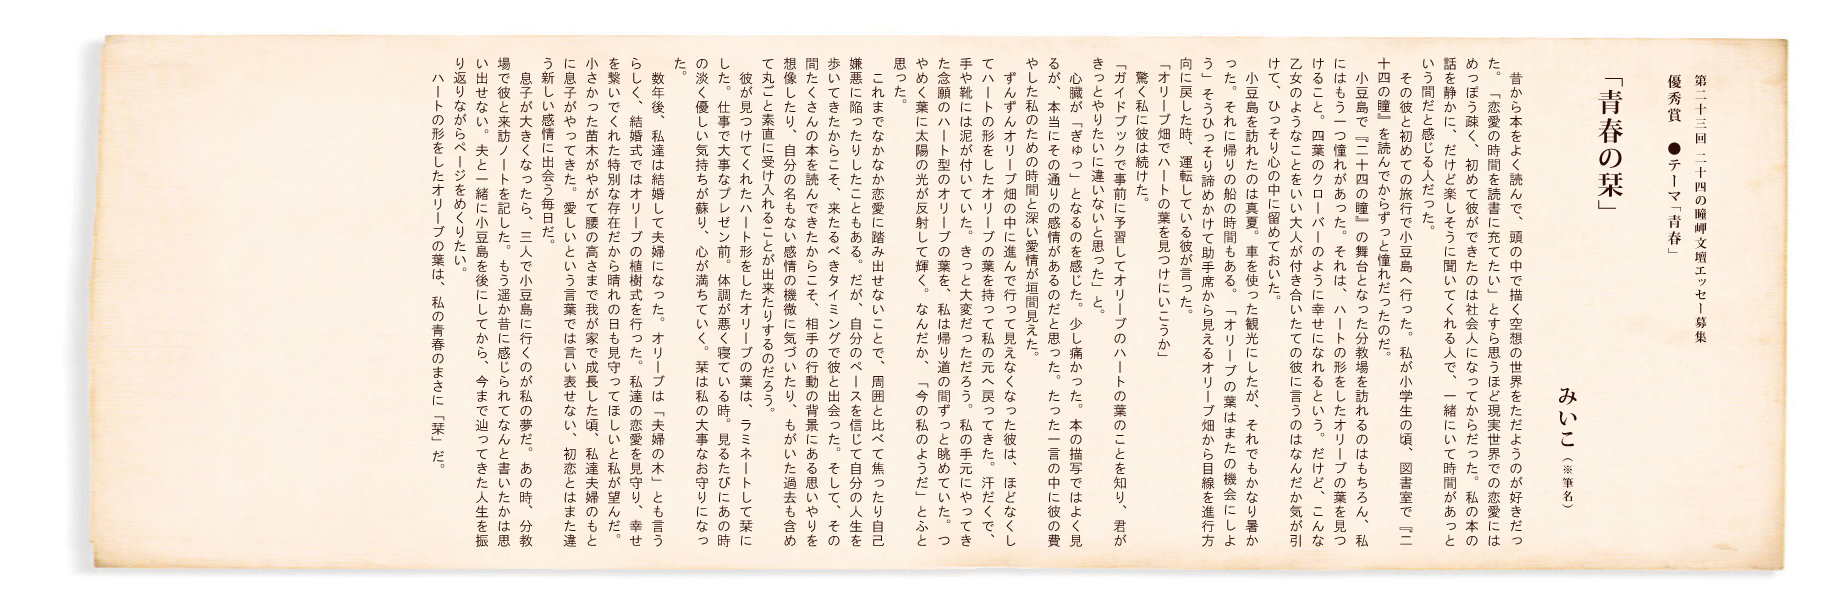 第二十三回 二十四の瞳岬文壇エッセー募集
優秀賞 ●テーマ「青春」
「青春の栞」
みいこ(※筆名)
昔から本をよく読んで、頭の中で描く空想の世界をただようのが好きだっ
た。「恋愛の時間を読書に充てたい」とすら思うほど現実世界での恋愛には
めっぽう疎く、初めて彼ができたのは社会人になってからだった。私の本の
話を静かに、だけど楽しそうに聞いてくれる人で、一緒にいて時間があっと
いう間だと感じる人だった。
その彼と初めての旅行で小豆島へ行った。私が小学生の頃、図書室で『二
十四の瞳』を読んでからずっと憧れだったのだ。
小豆島で『二十四の瞳』の舞台となった分教場を訪れるのはもちろん、私
にはもう一つ憧れがあった。それは、ハートの形をしたオリーブの葉を見つ
けること。四葉のクローバーのように幸せになれるという。だけど、こんな
乙女のようなことをいい大人が付き合いたての彼に言うのはなんだか気が引
けて、ひっそり心の中に留めておいた。
小豆島を訪れたのは真夏。車を使った観光にしたが、それでもかなり暑か
った。それに帰りの船の時間もある。「オリーブの葉はまたの機会にしよ
う」そうひっそり諦めかけて助手席から見えるオリーブ畑から目線を進行方
向に戻した時、運転している彼が言った。
「オリーブ畑でハートの葉を見つけにいこうか」
驚く私に彼は続けた。
「ガイドブックで事前に予習してオリーブのハートの葉のことを知り、君が
きっとやりたいに違いないと思った」と。
心臓が「ぎゅっ」となるのを感じた。少し痛かった。本の描写ではよく見
るが、本当にその通りの感情があるのだと思った。たった一言の中に彼の費
やした私のための時間と深い愛情が垣間見えた。
ずんずんオリーブ畑の中に進んで行って見えなくなった彼は、ほどなくし
てハートの形をしたオリーブの葉を持って私の元へ戻ってきた。汗だくで、
手や靴には泥が付いていた。きっと大変だっただろう。私の手元にやってき
た念願のハート型のオリーブの葉を、私は帰り道の間ずっと眺めていた。つ
やめく葉に太陽の光が反射して輝く。なんだか、「今の私のようだ」とふと
思った。
これまでなかなか恋愛に踏み出せないことで、周囲と比べて焦ったり自己
嫌悪に陥ったりしたこともある。だが、自分のペースを信じて自分の人生を
歩いてきたからこそ、来たるべきタイミングで彼と出会った。そして、その
間たくさんの本を読んできたからこそ、相手の行動の背景にある思いやりを
想像したり、自分の名もない感情の機微に気づいたり、もがいた過去も含め
て丸ごと素直に受け入れることが出来たりするのだろう。
彼が見つけてくれたハート形をしたオリーブの葉は、ラミネートして栞に
した。仕事で大事なプレゼン前。体調が悪く寝ている時。見るたびにあの時
の淡く優しい気持ちが蘇り、心が満ちていく。栞は私の大事なお守りになっ
た。
数年後、私達は結婚して夫婦になった。オリーブは「夫婦の木」とも言う
らしく、結婚式ではオリーブの植樹式を行った。私達の恋愛を見守り、幸せ
を繋いでくれた特別な存在だから晴れの日も見守ってほしいと私が望んだ。
小さかった苗木がやがて腰の高さまで我が家で成長した頃、私達夫婦のもと
に息子がやってきた。愛しいという言葉では言い表せない、初恋とはまた違
う新しい感情に出会う毎日だ。
息子が大きくなったら、三人で小豆島に行くのが私の夢だ。あの時、分教
場で彼と来訪ノートを記した。もう遥か昔に感じられてなんと書いたかは思
い出せない。夫と一緒に小豆島を後にしてから、今まで辿ってきた人生を振
り返りながらページをめくりたい。
ハートの形をしたオリーブの葉は、私の青春のまさに「栞」だ。